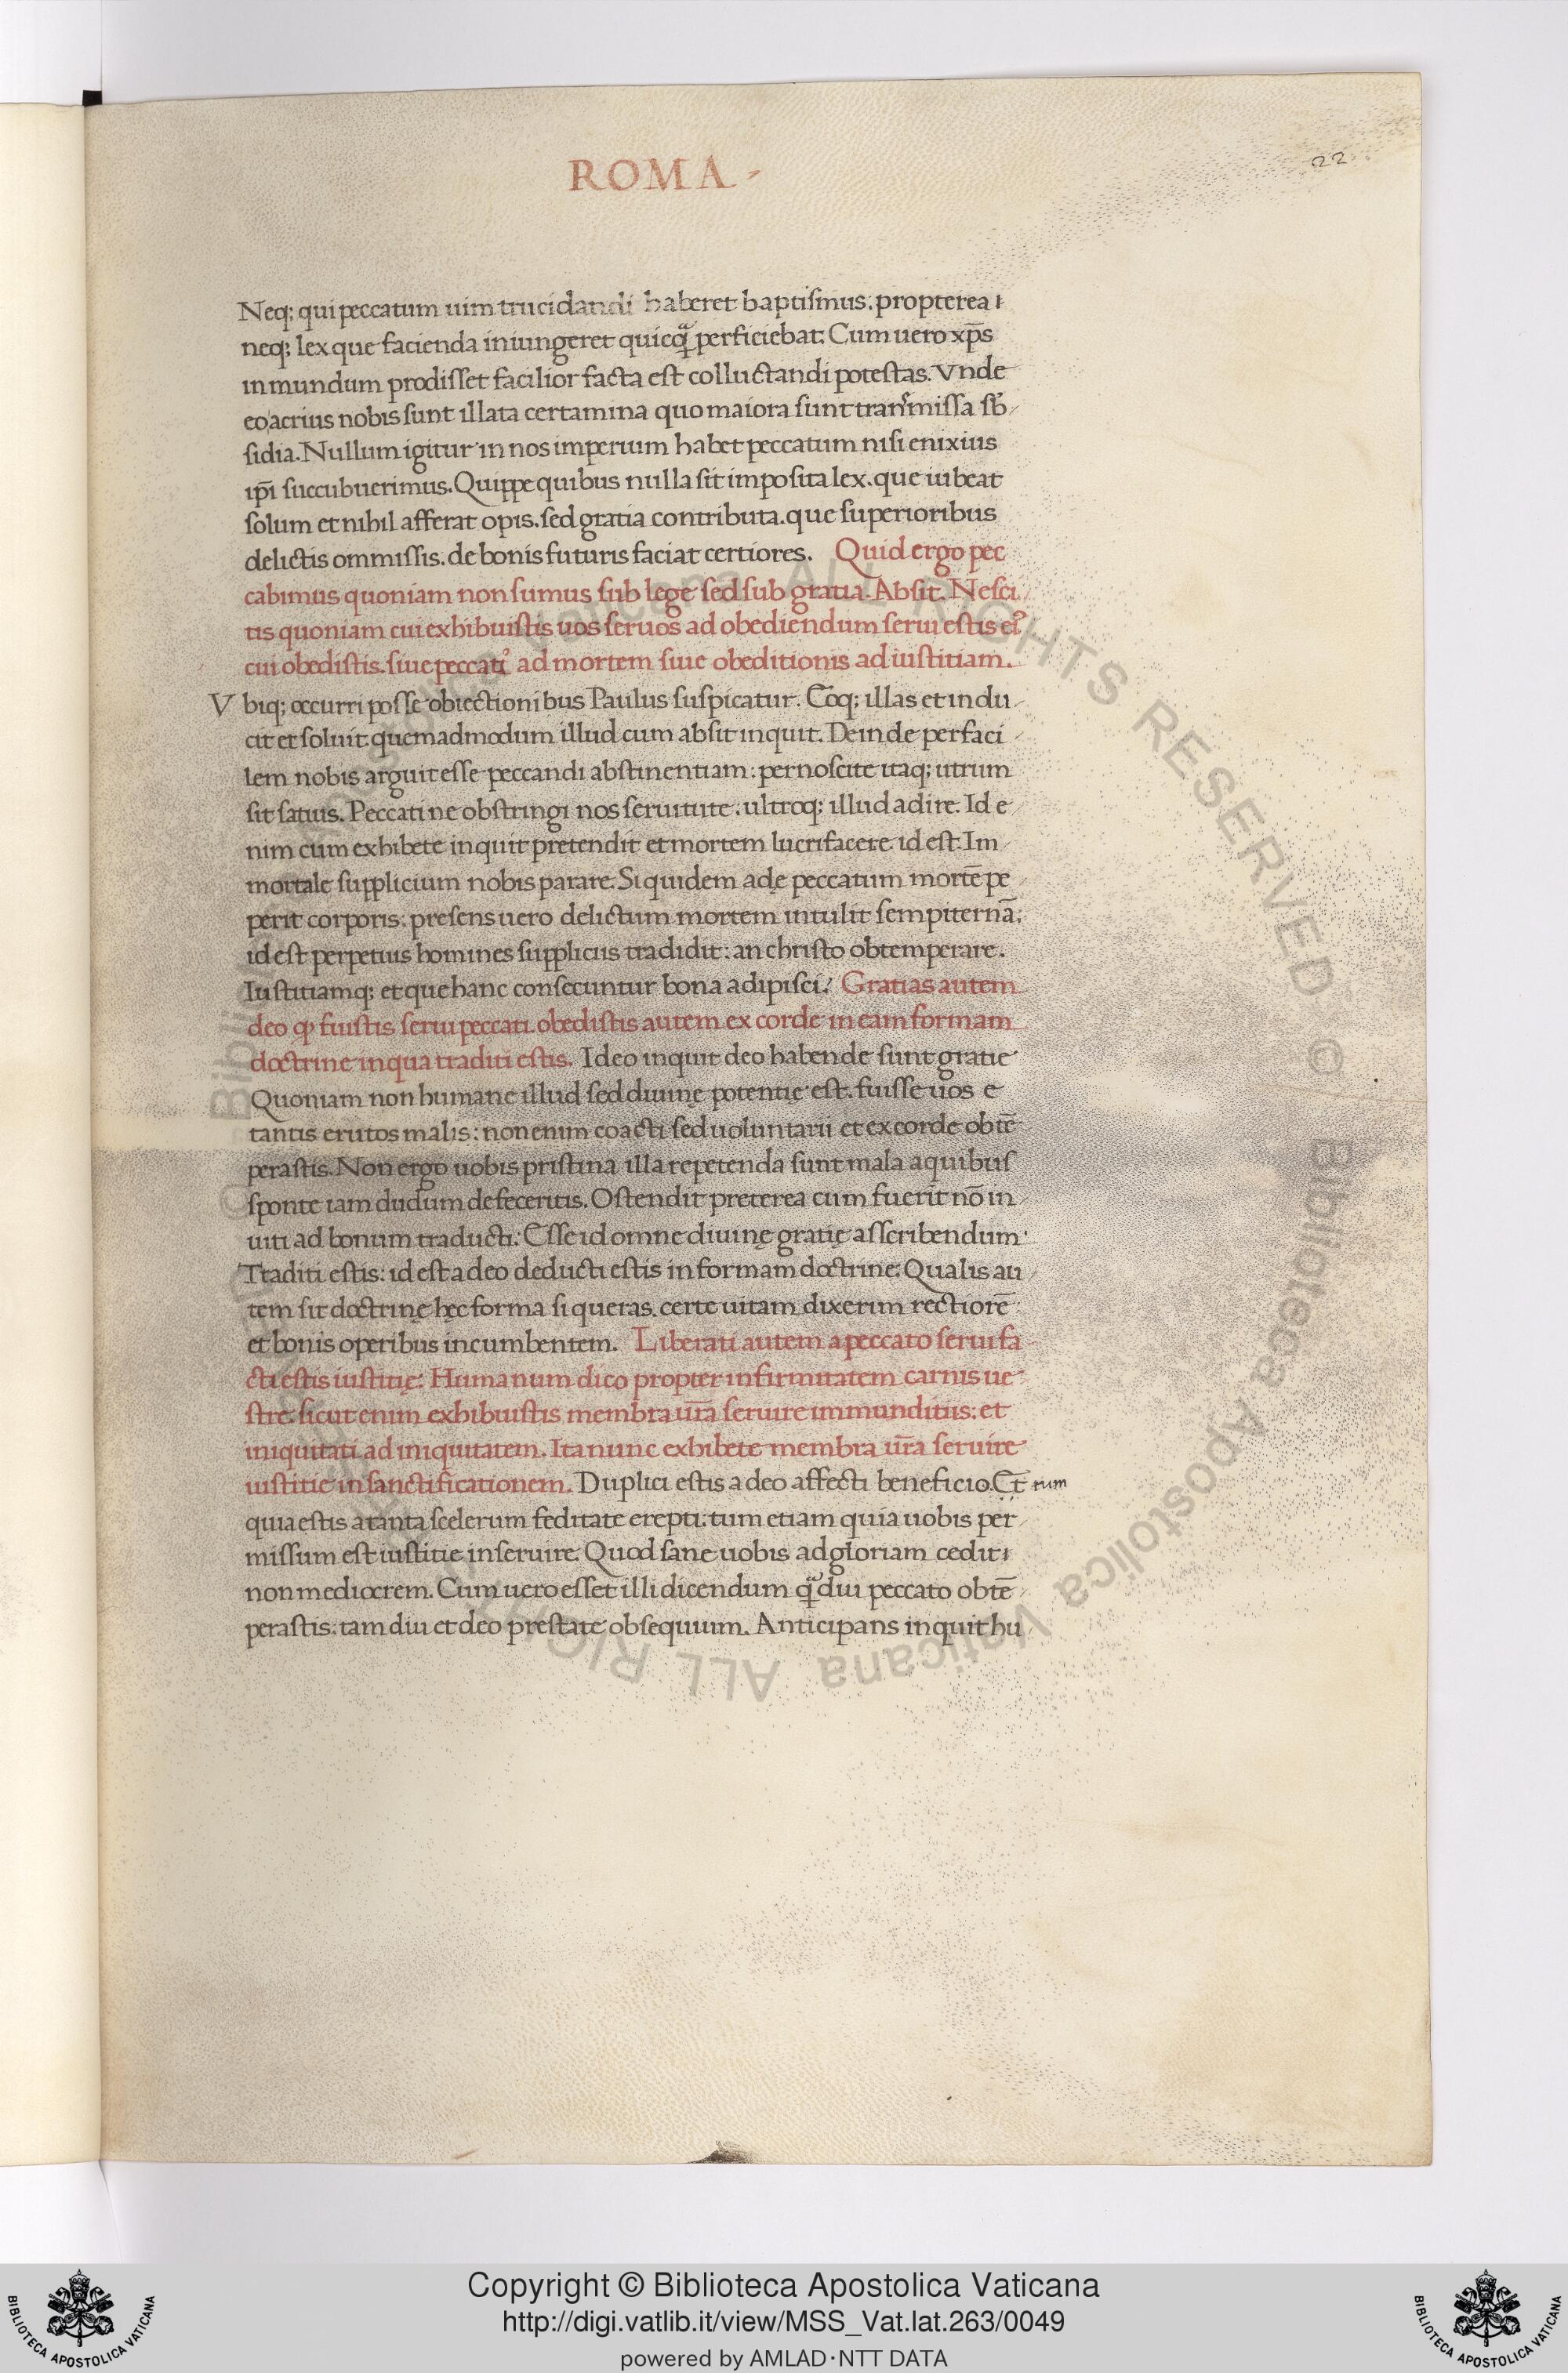 ROMA
22
Neq; qui peccatum uim trucidandi haberet baptismus. propterea
neq; lex que facienda iniungeret quicq̃ perficiebat. Cum uero xp̄s
in mundum prodisset facilior facta est colluctandi potestas. Vnde
eo acrius nobis sunt illata certamina quo maiora sunt transmissa sb̄
sidia. Nullum igitur in nos imperium habet peccatum nisi enixius
ip̄i succubuerimus. Quippe quibus nulla sit imposita lex. que iubeat
solum et nihil afferat opis. sed gratia contributa. que superioribus
delictis ommissis. de bonis futuris faciat certiores. Quid ergo pec
cabimus quoniam non sumus sub lege sed sub gratia. Absit. Nesci
tis quoniam cui exhibuistis uos seruos ad obediendum serui estis ei
cui obedistis. siue peccati ad mortem siue obeditionis ad iustitiam.
Vbiq; occurri posse obiectionibus Paulus suspicatur. Eoq; illas et indu
cit et soluit. quemadmodum illud cum absit inquit. Deinde perfaci
lem nobis arguit esse peccandi abstinentiam: pernoscite itaq; utrum
sit satius. Peccati ne obstringi nos seruitute. ultroq; illud adire. Id e
nim cum exhibete inquit pretendit et mortem lucrifacere. id est. Im
mortale supplicium nobis parare. Siquidem adę peccatum mortē pe
perit corporis: presens uero delictum mortem intulit sempiternā;
id est perpetuis homines suppliciis tradidit: an christo obtemperare.
Iustitiamq; et que hanc consecuntur bona adipisci. Gratias autem
deo qp fuistis serui peccati. obedistis autem ex corde in eam formam
doctrine in qua traditi estis. Ideo inquit deo habende sunt gratie
Quoniam non humane illud sed diuinę potentię est. fuisse uos e
tantis erutos malis: non enim coacti sed uoluntarii et ex corde obtē
perastis. Non ergo uobis pristina illa repetenda sunt mala a quibus
sponte iam dudum defeceritis. Ostendit preterea cum fuerit nō in
uiti ad bonum traducti: Esse id omne diuinę gratię asscribendum.
Traditi estis: id est a deo deducti estis in formam doctrine. Qualis au
tem sit doctrinę hęc forma si queras. certe uitam dixerim rectiorē
et bonis operibus incumbentem. Liberati autem a peccato serui fa
cti estis iustitię: Humanum dico propter infirmitatem carnis ue
stre. sicut enim exhibuistis membra ur̄a seruire immunditiis: et
iniquitati ad iniquitatem. Ita nunc exhibete membra ur̄a seruire
iustitie in sanctificationem. Duplici estis a deo affecti beneficio. tum
quia estis a tanta scelerum feditate erepti: tum etiam quia uobis per
missum est iustitie inseruire. Quod sane uobis ad gloriam cedit
non mediocrem. Cum uero esset illi dicendum q̃diu peccato obtē
perastis: tam diu et deo prestate obsequium. Anticipans inquit hu
© Biblioteca Apostolica Vaticana ALL RIGHTS RESERVED
© Biblioteca Apostolica Vaticana ALL RIGHTS RESERVED
Copyright © Biblioteca Apostolica Vaticana
http://digi.vatlib.it/view/MSS_Vat.lat.263/0049
powered by AMLAD·NTT DATA
BIBLIOTECA APOSTOLICA VATICANA
BIBLIOTECA APOSTOLICA VATICANA